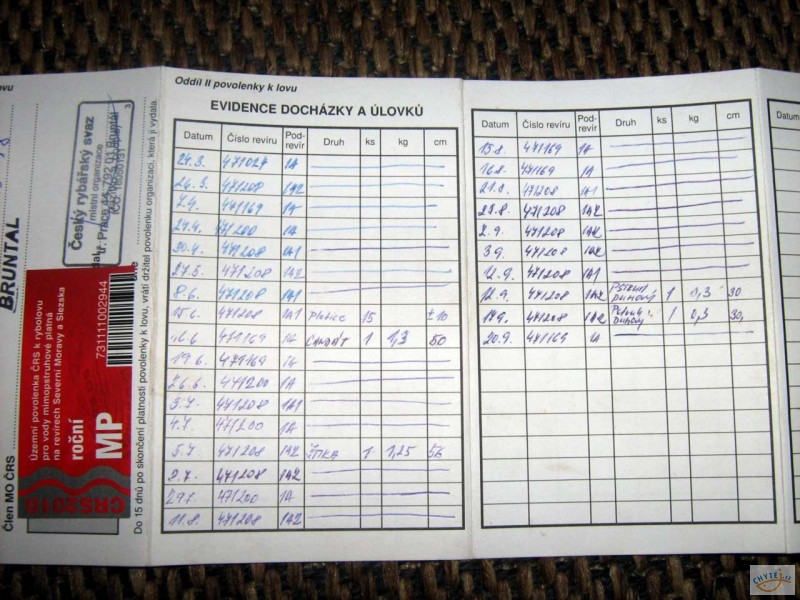 Oddíl II povolenky k lovu
EVIDENCE DOCHÁZKY A ÚLOVKŮ
Datum Číslo revíru Pod-revír Druh ks kg cm
24.3. 471027 1A
26.3. 471208 1A2
7.4. 471169 1A
24.4. 471200 1A
30.4. 471208 1A1
27.5. 471208 1A2
8.6. 471208 1A1
15.6. 471208 1A1 plotice 15 ±10
471169 1 1,3 50
19.6. 471169 1A
26.6. 471200 1A
3.7. 471208 1A1
4.7. 471200 1A
5.7. 471208 1A2 ŠTIKA 1 1,25 56
8.7. 471208 1A2
29.7. 471200 1A
11.8. 471208 1A2
Datum Číslo revíru Pod-revír Druh ks kg cm
15.8. 471169 1A
16.8. 471169 1A
21.8. 471208 1A1
28.8. 471208 1A2
2.9. 471208 1A2
3.9. 471208 1A2
12.9. 471208 1A1
12.9. 471208 1A2 PSTRUH DUHOVÝ 1 0,3 30
19.9. 471208 1A2 Pstruh Duhový 1 0,3 30
20.9. 471169 1A
Da
ovu
Člen MO ČRS
BRUNTÁL
Český rybářský svaz
místní organizace
tř. Práce 44, 792 01 Bruntál
3
Územní povolenka ČRS k rybolovu
pro vody mimopstruhové platná
na revírech Severní Moravy a Slezska
roční
MP
731111002944
ČRS2010
Do 15 dnů po skončení platnosti povolenky k lovu, vrátí držitel povolenku organizaci, která ji vydala.
CHYTEJ.cz